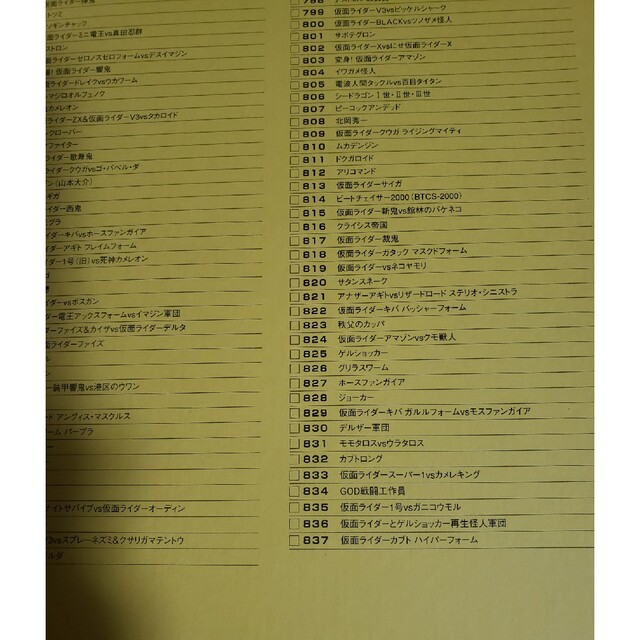 トツミ
ソギンチャック
ライダーミニ電王vs真田忍群
ストロン
仮面ライダーゼロノスゼロフォームvsデスイマジン
仮面ライダー響鬼
ライダードレイクvsウカワーム
マシロオルフェノク
カメレオン
ライダーZX&仮面ライダーV3vsタカロイド
クローバー
ファイター
ライダー歌舞鬼
ライダークウガvsゴ・バベル・ダ
ン(山本大介)
ギガ
イダー西鬼
ブラ
イダーキバvsホースファンガイア
イダーアギト フレイムフォーム
イダー1号(旧)vs死神カメレオン
ゴ
イダーvsボスガン
ダー電王アックスフォームvsイマジン軍団
ダーファイズ&カイザvs仮面ライダーデルタ
面ライダーファイズ
ー装甲響鬼vs港区のウワン
ド アングィス・マスクルス
ーム パープラ
ナイトサバイブvs仮面ライダーオーディン
V3vsスプレーネズミ&クサリガマテントウ
ルダ
798
799 仮面ライダーV3vsピッケルシャーク
800 仮面ライダーBLACKvsツノザメ怪人
801 サボテグロン
802 仮面ライダーXvsにせ仮面ライダーX
803 変身! 仮面ライダーアマゾン
804 イワガメ怪人
805 電波人間タックルvs百目タイタン
806 シードラゴンⅠ世・Ⅱ世・Ⅲ世
807 ピーコックアンデッド
808 北岡秀一
809 仮面ライダークウガ ライジングマイティ
810 ムカデンジン
811 ドクガロイド
812 アリコマンド
813 仮面ライダーサイガ
814 ビートチェイサー2000(BTCS-2000)
815 仮面ライダー斬鬼vs館林のバケネコ
816 クライシス帝国
817 仮面ライダー裁鬼
818 仮面ライダーガタック マスクドフォーム
819 仮面ライダーvsネコヤモリ
820 サタンスネーク
821 アナザーアギトvsリザードロード ステリオ・シニストラ
822 仮面ライダーキバ バッシャーフォーム
823 秩父のカッパ
824 仮面ライダーアマゾンvsクモ獣人
825 ゲルショッカー
826 グリラスワーム
827 ホースファンガイア
828 ジョーカー
829 仮面ライダーキバ ガルルフォームvsモスファンガイア
830 デルザー軍団
831 モモタロスvsウラタロス
832 カブトロング
833 仮面ライダースーパー1vsカメレキング
834 GOD戦闘工作員
835 仮面ライダー1号vsガニコウモル
836 仮面ライダーとゲルショッカー再生怪人軍団
837 仮面ライダーカブト ハイパーフォーム